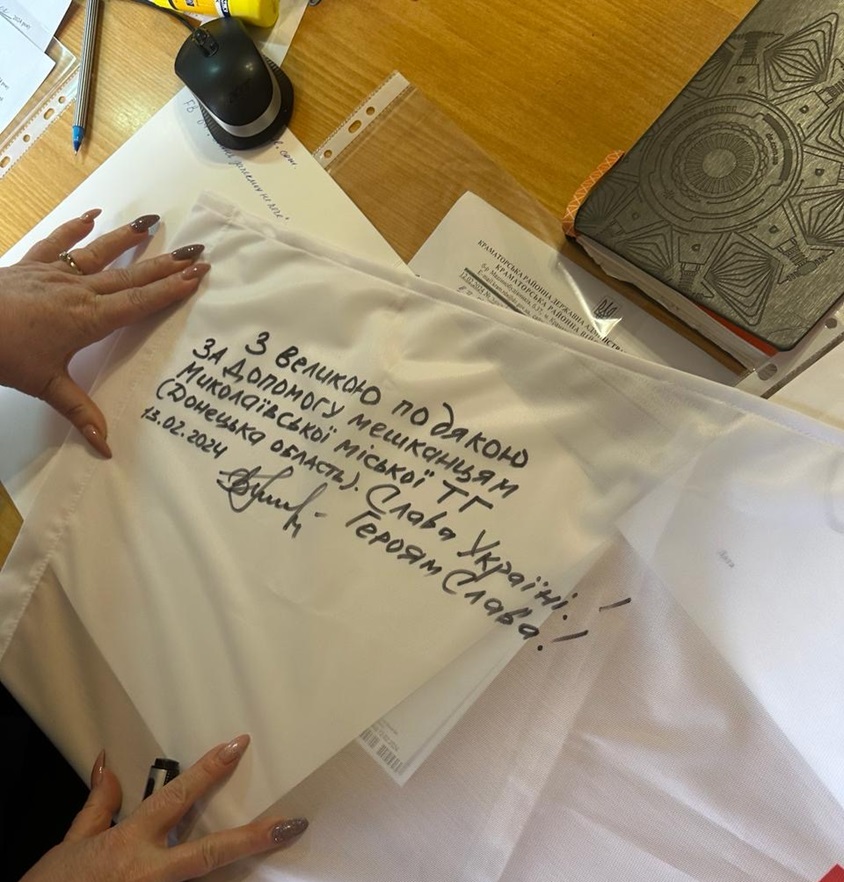 З великою подякою
за допомогу мешканцям
Миколаївської міської ТГ
(Донецька область). Слава Україні!
13.02.2024 Героям Слава!
КРАМАТОРСЬКА РАЙОННА ДЕРЖАВНА
КРАМАТОРСЬКА РАЙОННА